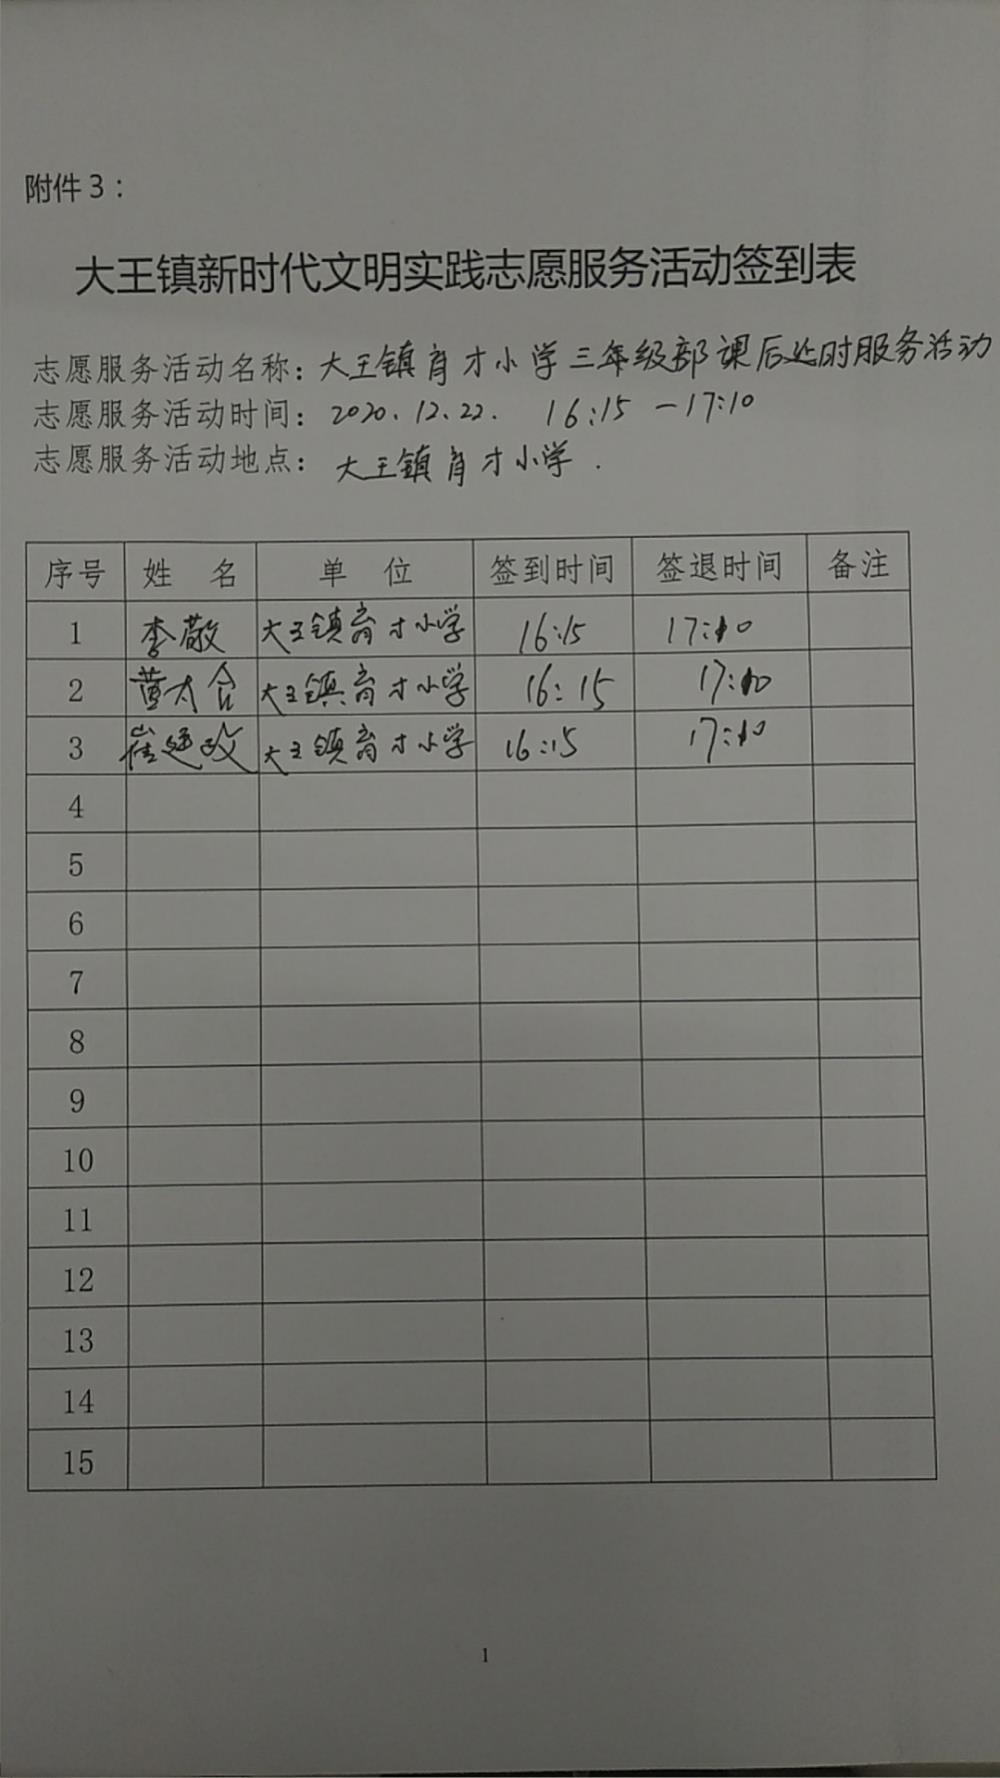 附件3：
大王镇新时代文明实践志愿服务活动签到表
志愿服务活动名称：大王镇育才小学三年级部课后延时服务活动
志愿服务活动时间：2020.12.22. 16:15—17:10
志愿服务活动地点：大王镇育才小学.
序号 姓 名 单 位 签到时间 签退时间 备注
1 李敬 大王镇育才小学 16:15 17:10
2 黄太合 大王镇育才小学 16:15 17:10
3 崔廷政 大王镇育才小学 16:15 17:10
4
5
6
7
8
9
10
11
12
13
14
15
1